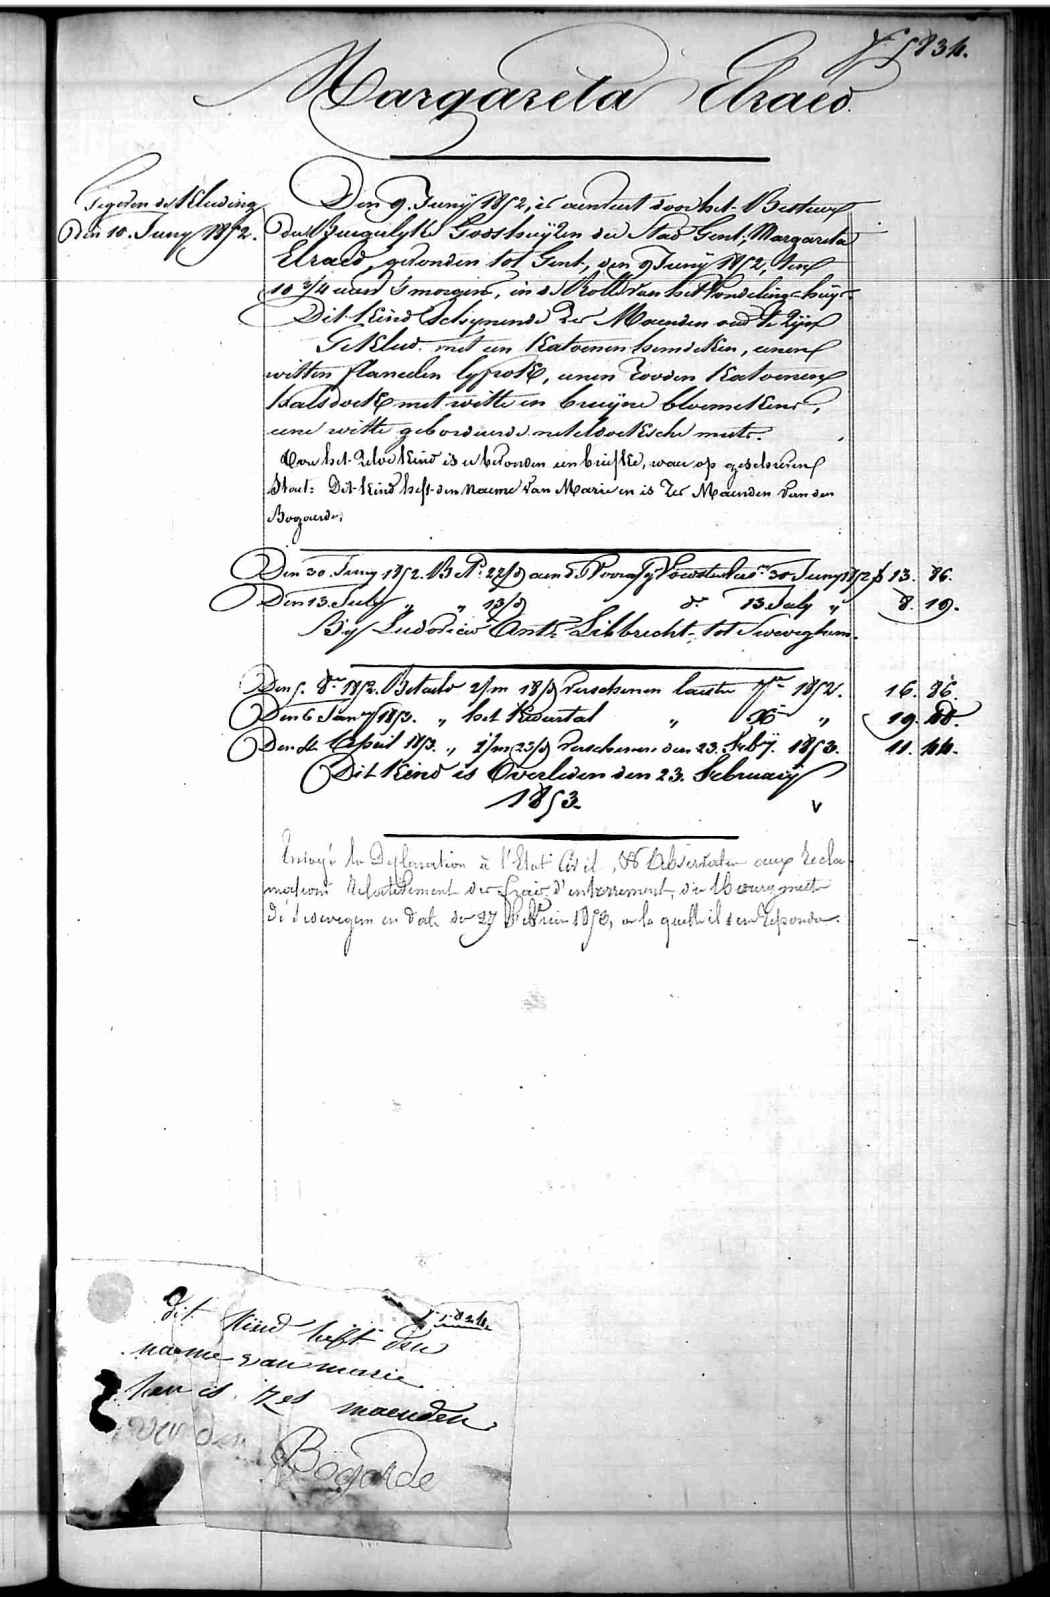 5834.
Margareta Elraed.
Gegeven de Kleeding
Den 10. Juny 1852.
Den 9. Juny 1852, is aenveert door het Bestuer
der Burgerlyke Godshuyzen der Stad Gent, Margareta
Elraed, gevonden tot Gent, den 9 Juny 1852, ten
10 3/4 uren 's morgens, in de Rolle van het Vondeling-huys.
Dit kind schynende Zes Maenden oud te zyn
Gekleed met een katoenen hemdeken, eenen
witten flanellen lyfrok, eenen rooden katoenen
halsdoek met witte en bruyne bloemekens,
eene witte geborduerde neteldoeksche muts.
Op het zelve kind is er bevonden een briefke, waer op geschreven
Staet: Dit kind heft den naeme van Marie en is Zes Maenden van den
Bogaerde;
Den 30 Juny 1852. Bet. 22/d aen de Voorsterker 30 Juny 1852 f 13. 86.
Den 13 July " " 13/d do 13 July " 8. 19.
By Ludovicus Ant. Libbrecht, tot Sweveghem.
Den 5. 8er 1852. Betaeld 2/m 18/d verschenen laeste 7er 1852. 16. 86.
Den 6 Jany 1853. " het Kwartal " Xer " 19.
Den 4 April 1853. " 1/m 23/d verschenen den 23. Feby. 1853. 11. 44.
Dit Kind is Overleden den 23. February
1853.
v
Envoyé la Déclaration à l'Etat Civil, & Observation aux recla-
mations de payement des frais d'enterrement, du Bourgmestre
de Swevegem en date du 27 Février 1853, à la quelle il sera repondu.
dit kind heft den
naeme van marie
en is zes maenden
van den
Bogarde